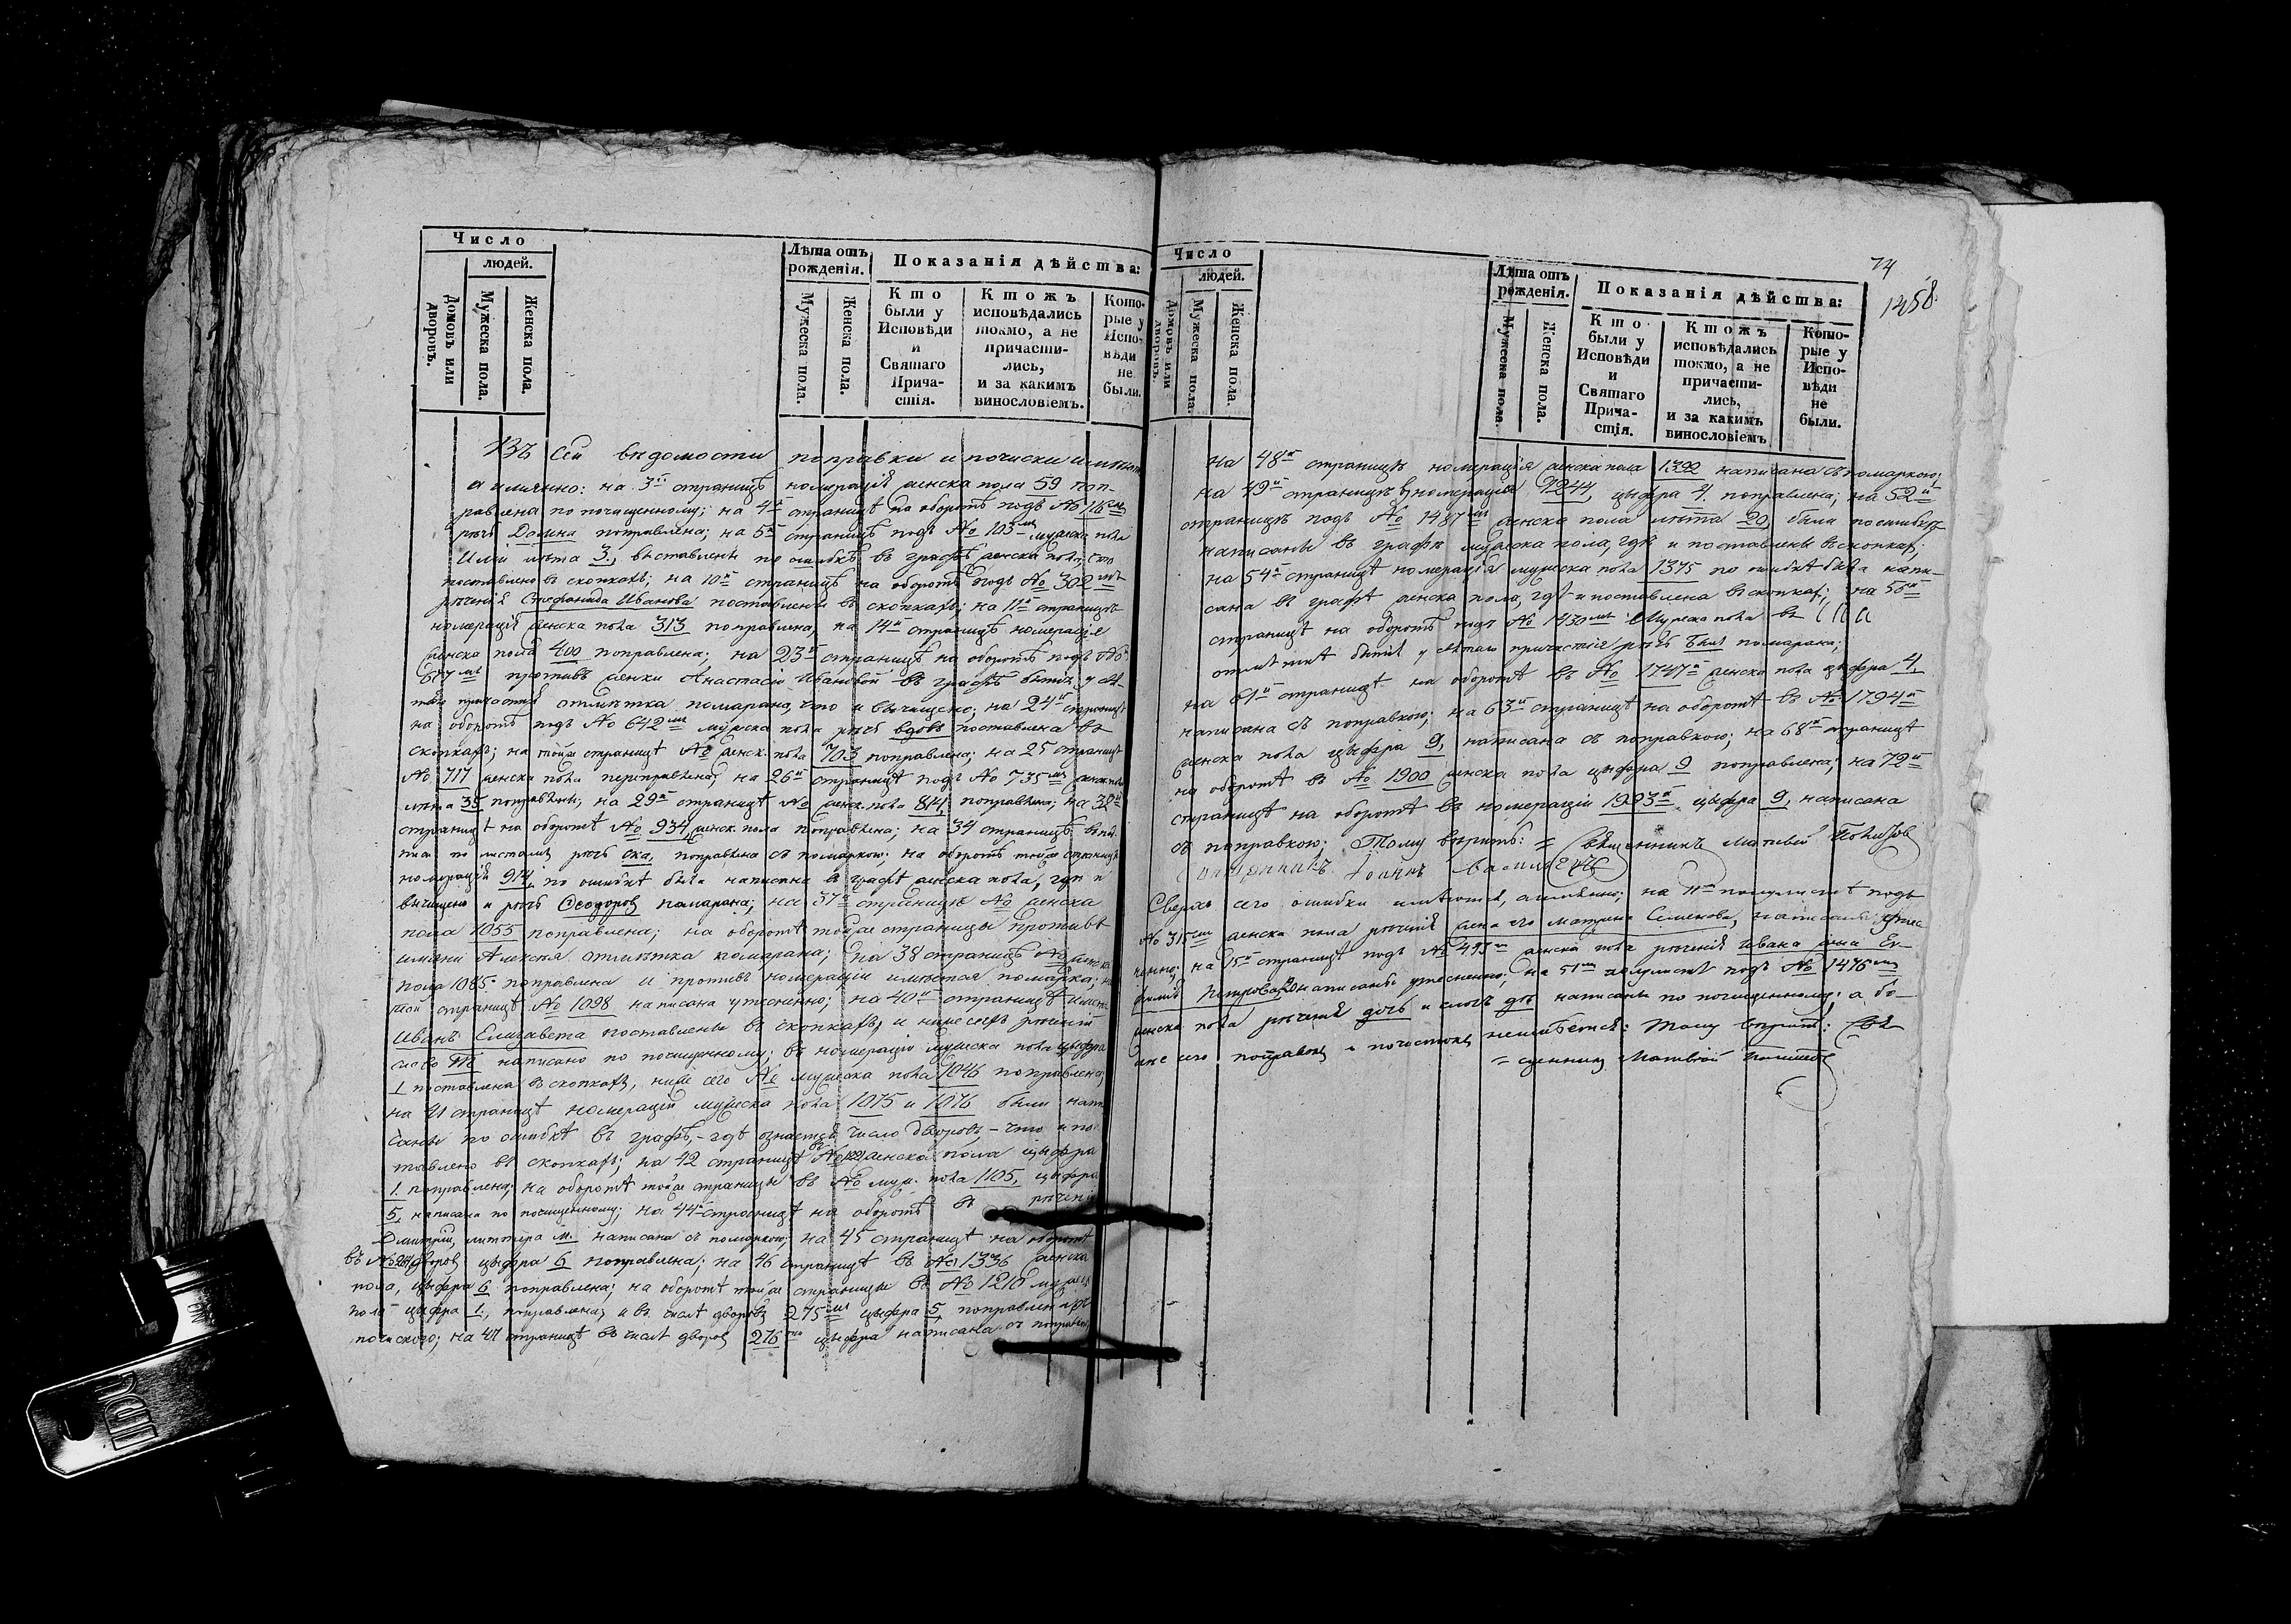 Число
людей.
Домовъ или дворовъ.
Мужеска пола.
Женска пола.
Лѣта отъ рожденія.
Мужеска пола.
Женска пола.
Показанія дѣйства:
Кто были у Исповѣди и Святаго Прича-стія.
Ктожъ исповѣдались токмо, а не причасти-лись, и за какимъ винословіемъ.
Кото-рые у Испо-вѣди не были.
Въ сей вѣдомости поправки и почиски имѣются
а имянно: на 3й страницѣ номерація женска пола 59 поп-
равлена по почищенному; на 4й страницѣ на оборотѣ подъ № 116мъ
рѣчь Домна поправлена; на 5й страницѣ подъ № 103мъ мужеска пола
лѣта 3, выставлены по ошибкѣ въ графѣ женска пола, что
поставлено въ скопкахъ; на 10й страницѣ на оборотѣ подъ № 302мъ
рѣченія Стефанида Иванова поставлены въ скопкахъ; на 11й страницѣ
номерація женска пола 313 поправлена, на 14й страницѣ номерація
женска пола 400 поправлена; на 23й страницѣ на оборотѣ подъ №
677мъ противъ женки Анастасіи Ивановой въ графѣ бытія у свя-
таго причастія отмѣтка помарана, что и вычищено; на 24й страницѣ
на оборотѣ подъ № 642мъ мужска пола рѣчь вдовъ поставлена въ
скопкахъ; на той же страницѣ № женск. пола 703 поправлена; на 25 страницѣ
№ 717 женска пола переправлена; на 26й страницѣ подъ № 735мъ женск. пола
лѣта 35 поправлены; на 29й страницѣ № женск. пола 814, поправлена; на 33й
страницѣ на оборотѣ № 934, женск. пола поправлена; на 34 страницѣ
по листамъ рѣчь ска, поправлена съ помаркою: на оборотѣ той же страницы
номерація 914, по ошибкѣ была написана въ графѣ женска пола, гдѣ и
вычищено и рѣчь Ѳеодоровъ помарана; на 37й страницѣ № женска
пола 1055 поправлена; на оборотѣ той же страницы противъ
имяни Алексѣя отмѣтка помарана; на 38 страницѣ № женска
пола 1085 поправлена и противъ номераціи имѣется помарка; на
той страницѣ № 1098 написана утесненно; на 40й страницѣ имена
Иванъ Елизавета поставлены въ скопкахъ, и ниже сихъ рѣченій
слово написано по почищенному; въ номераціи мужеска пола цыфра
1 поставлена въ скопкахъ, ниже сего № мужеска пола 1046 поправлена;
на 41 страницѣ номераціи мужеска пола 1075 и 1076 были напи-
саны по ошибкѣ въ графѣ, - гдѣ значится число дворовъ - что и пос-
тавлено въ скопкахъ; на 42 страницѣ въ № женска пола цыфра
1. поправлена; на оборотѣ той же страницы въ № муж. пола 1105, цыфра
5, написана по почищенному; на 44й страницѣ на оборотѣ въ рѣченіи
Дмитрій, литтера м. написана съ помаркою; на 45 страницѣ на оборотѣ
въ № дворовъ цыфра 6 поправлена; на 46 страницѣ въ № 1336 женска
пола, цыфра 6 поправлена; на оборотѣ той же страницы въ № 1218 мужеск
пола цыфра 1., поправлена; и въ числѣ дворовъ 275мъ цыфра 5, поправлена
почискою; на 47 страницѣ въ числѣ дворовъ 276 цыфра написана съ поправк
74
1458.
Число
людей.
Домовъ или дворовъ.
Мужеска пола.
Женска пола.
Лѣта отъ рожденія.
Мужеска пола.
Женска пола.
Показанія дѣйства:
Кто были у Исповѣди и Святаго Прича-стія.
Ктожъ исповѣдались токмо, а не причасти-лись, и за какимъ винословіемъ
Кото-рые у Испо-вѣди не были.
на 48й страницѣ номерація женска пола 1392 написана съ помаркою;
на 49й страницѣ номерація 1244, цыфра 4. поправлена; на 52й
страницѣ подъ № 1487мъ женска пола лѣта 20, были по ошибкѣ
написаны въ графѣ мужеска пола, гдѣ и поставлены въ скопкахъ;
на 54й страницѣ номерація мужеска пола 1375 по ошибкѣ была напи-
сана въ графѣ женска пола, гдѣ и поставлена въ скопкахъ; на 58й
страницѣ на оборотѣ подъ № 1430мъ мужеска пола въ
отмѣткѣ бытія у святаго причастія рѣчь былъ помарана;
на 61й страницѣ на оборотѣ въ № 1747й женска пола цыфра 4,
написана съ поправкою; на 63й страницѣ на оборотѣ въ № 1794й
женска пола цыфра 9, написана съ поправкою; на 68й страницѣ
на оборотѣ въ № 1900 женска пола цыфра 9 поправлена; на 72й
страницѣ на оборотѣ въ номераціи 1993й цыфра 9, написана
съ поправкою; Тому вѣрить: = Священникъ Матвей
Священникъ Іоаннъ Васильевъ
Сверхъ сего ошибки имѣются, а имянно; на 11м полулистѣ подъ
№ 315мъ женска пола рѣченія жена его Матрена Семенова, написаны утес-
ненно; на 15й страницѣ подъ № 493м женска пола рѣченія Ивана жена Ев-
фимія Петрова написаны утесненно; на 51м полулистѣ подъ № 1476мъ
женска пола рѣченія дочь и слогъ до написаны по почищенному; а бо-
лѣе сего поправокъ и почистокъ неимѣется: Тому вѣрить: Свя-
= щенникъ Матвѣй